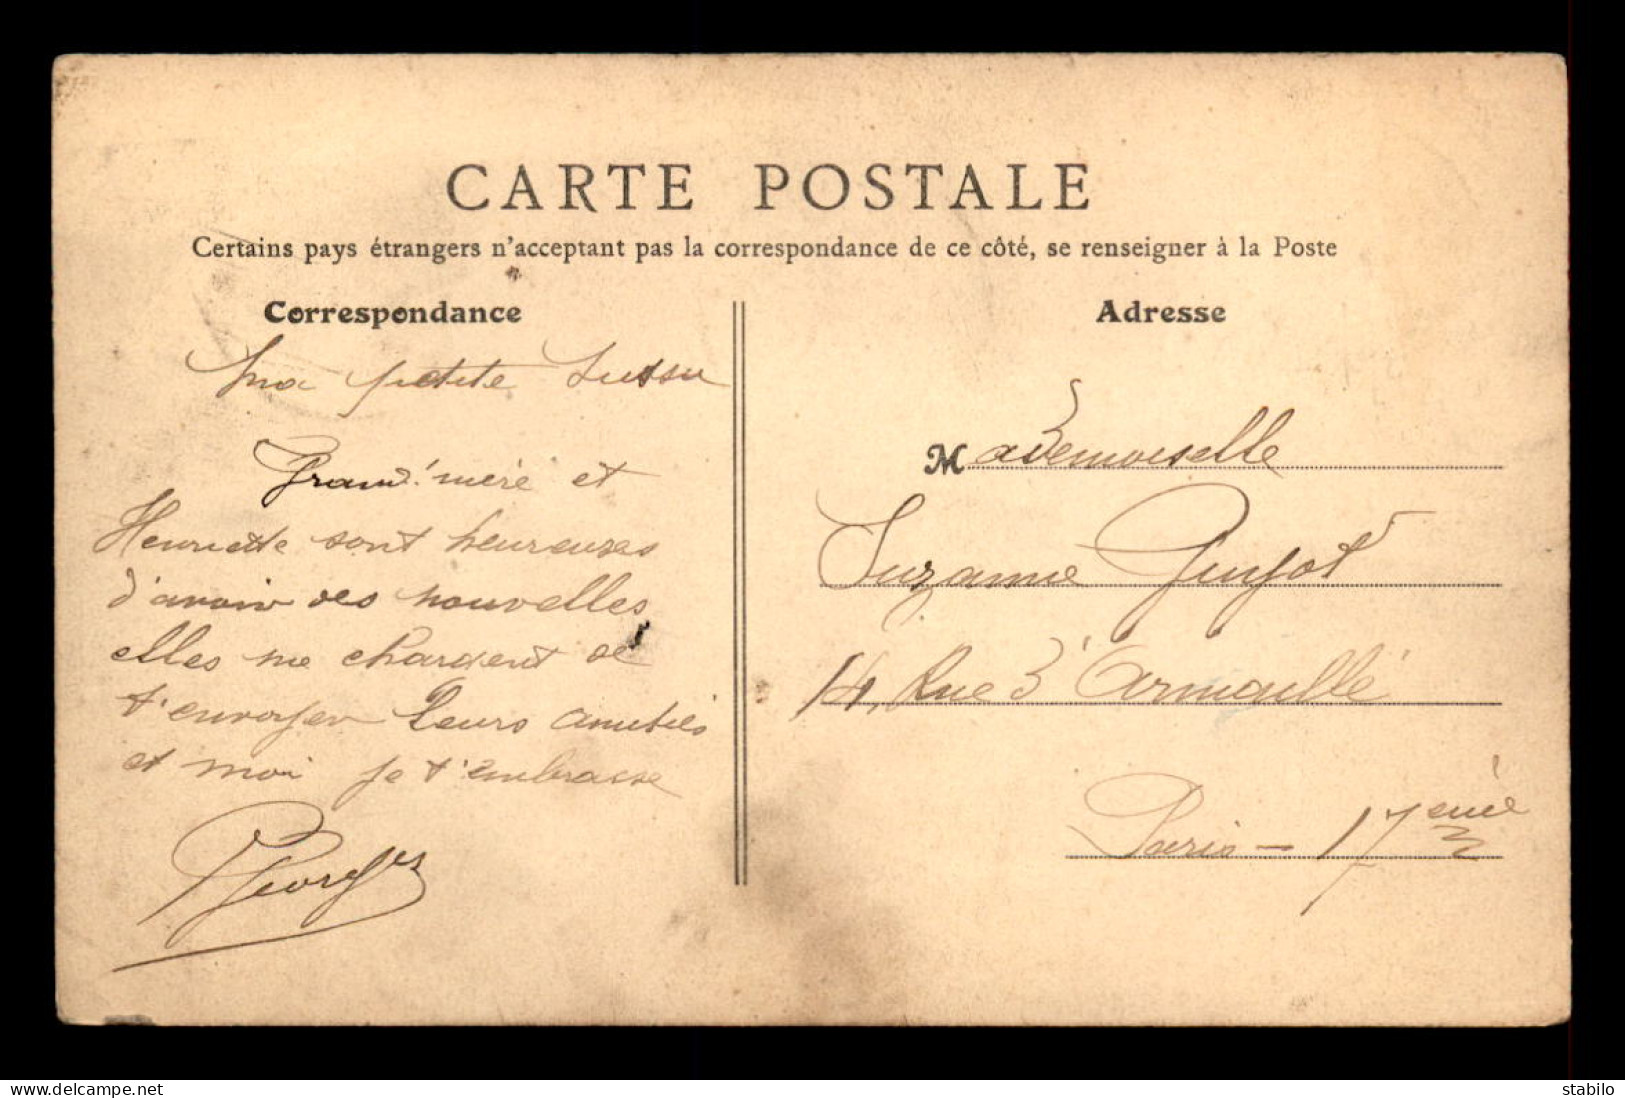 CARTE POSTALE
Certains pays étrangers n'acceptant pas la correspondance de ce côté, se renseigner à la Poste
Correspondance
Ma petite
Grand'mère et
Henriette sont heureuses
d'avoir des nouvelles
elles me chargent de
t'envoyer Leurs amitiés
et moi je t'embrasse
Georges
Adresse
Mademoiselle
Suzanne Guyot
14, Rue d'Armaillé
Paris - 17eme
delcampe.net
stabilo